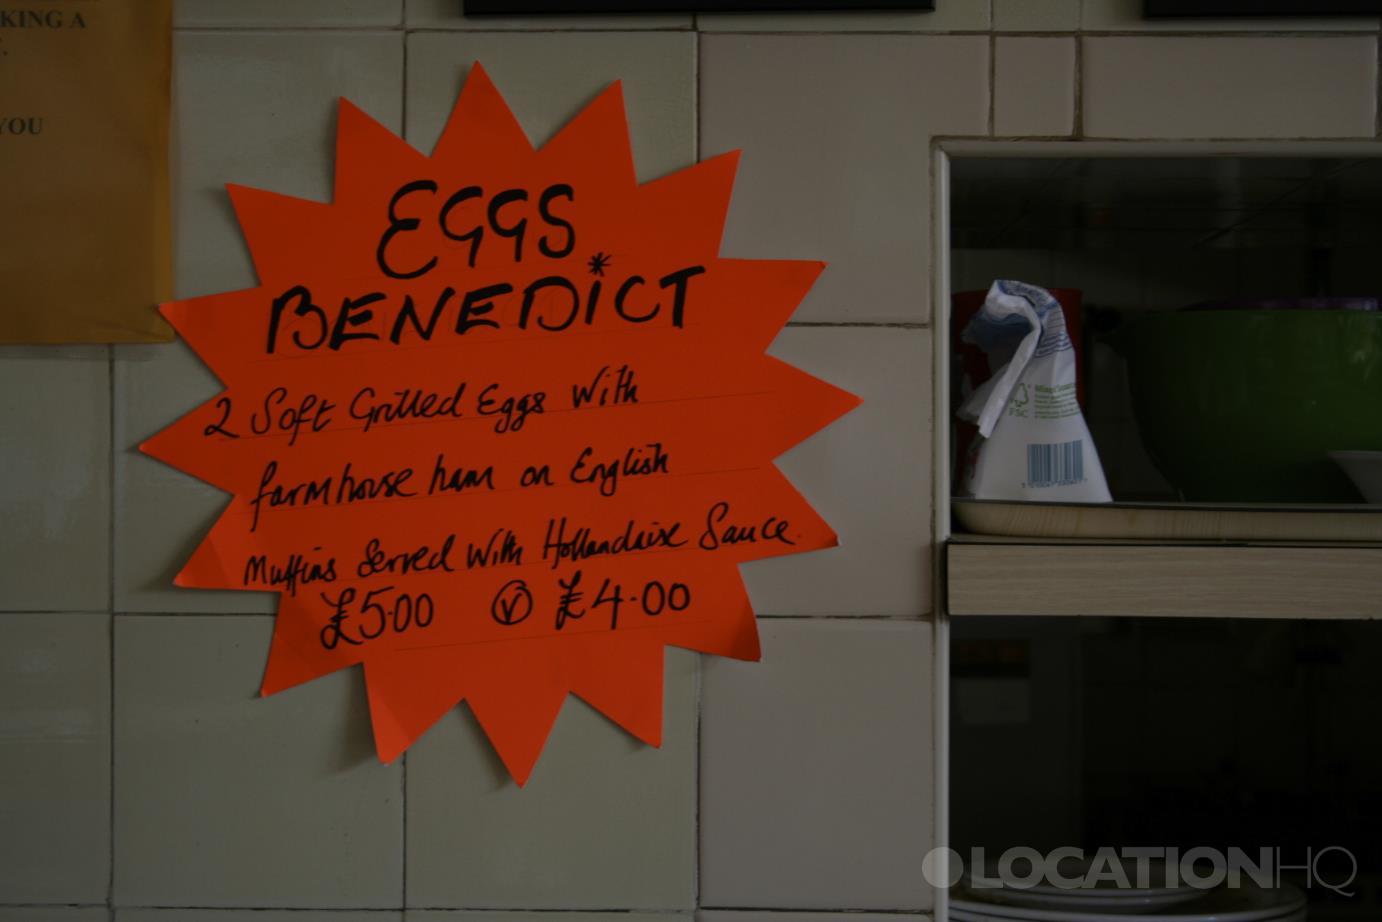 KING A
YOU
EGGS
BENEDiCT
2 Soft Grilled Eggs With
farmhouse ham on English
Muffins Served With Hollandaise Sauce.
£5.00 Ⓥ £4.00
FSC
LOCATIONHQ